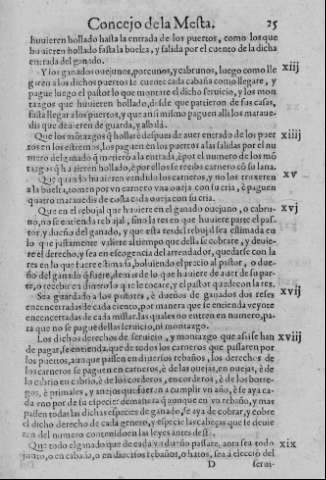 Concejo de la Mesta. 25
huuieren hollado hasta la entrada de los puertos, como los que
huuieren hollado hasta la buelta, y salida por el cuento de la dicha
entrada del ganado.
Y los ganados ouejunos, porcunos, y cabrunos, luego como lle xiij
garen a los dichos puertos se cuente cada cabaña como llegare, y
pague luego el pastor lo que montare el dicho seruicio, y los mon
tazgos que huuieren hollado, desde que partieron de sus casas,
hasta llegar a los puertos, y que ansi mismo paguen alli los maraue-
dis que deuieren de guarda, y albalá.
Que los mõtazgos q̃ hollarẽ despues de auer entrado de los puer xiiij
tos en los estremos, los paguen en los puertos a las salidas por el nu
mero del ganado q̃ metierõ a la entrada, è por el numero de los mõ
tazgos q̃ hallaren hollado, è por ellos se reciba carnero cõ su lana.
Que quando huuieren vendido los carneros, y no los traxeren xv
a la buelta, tomen por vn carnero vna oueja con su cria, è paguen
quatro marauedis de costa cada oueja con su cria.
Que en el rebujal que huuiere en el ganado ouejuno, o cabru- xvj
no, no se entienda rebujal, sino la res en que huuiere parte el pas-
tor, y dueño del ganado, y que esta res del rebujal sea estimada en
lo que justamente valiere al tiempo que della se cobrare, y deuie-
re el derecho, y sea en escogencia del arrendador, quedarse con la
res en lo que fuere estimada, boluiendo el precio al pastor, o due-
ño del ganado q̃ fuere, demas de lo que huuiere de auer de su par-
te, o recebir en dinero lo que le tocare, y el pastor quede con la res.
Sea guardado a los pastores, è dueños de ganados dos reses xvij
encencerradas de cada ciento, por manera que se entienda veynte
encencerradas de cada millar, las quales no entren en numero, pa-
ra que no se pague dellas seruicio, ni montazgo.
Los dichos derechos de seruicio, y montazgo que assi se han xviij
de pagar, se entienda, que de todos los carneros que passaren por
los puertos, aunque passen en diuersos rebaños, los derechos de
los carneros se paguen en carneros, è de las ouejas, en ouejas, è de
lo cabrio en cabrio, è de los corderos, en corderos, è de los borre-
gos, è primales, y anejos que fueren a cumplir vn año, è se aya ca-
da vno por de su especie: de manera q̃ aunque en vn rebaño, y mas
passen todas las dichas especies de ganado, se aya de cobrar, y cobre
el dicho derecho de cada genero, y especie las cabeças que se deuie
ren del numero contenido en las leyes antes desta.
Que todo el ganado que de cada vn dueño passare, aora sea todo xix
junto, o en cabaña, o en diuersos rebaños, o hatos, sea a eleccio del
D serui-